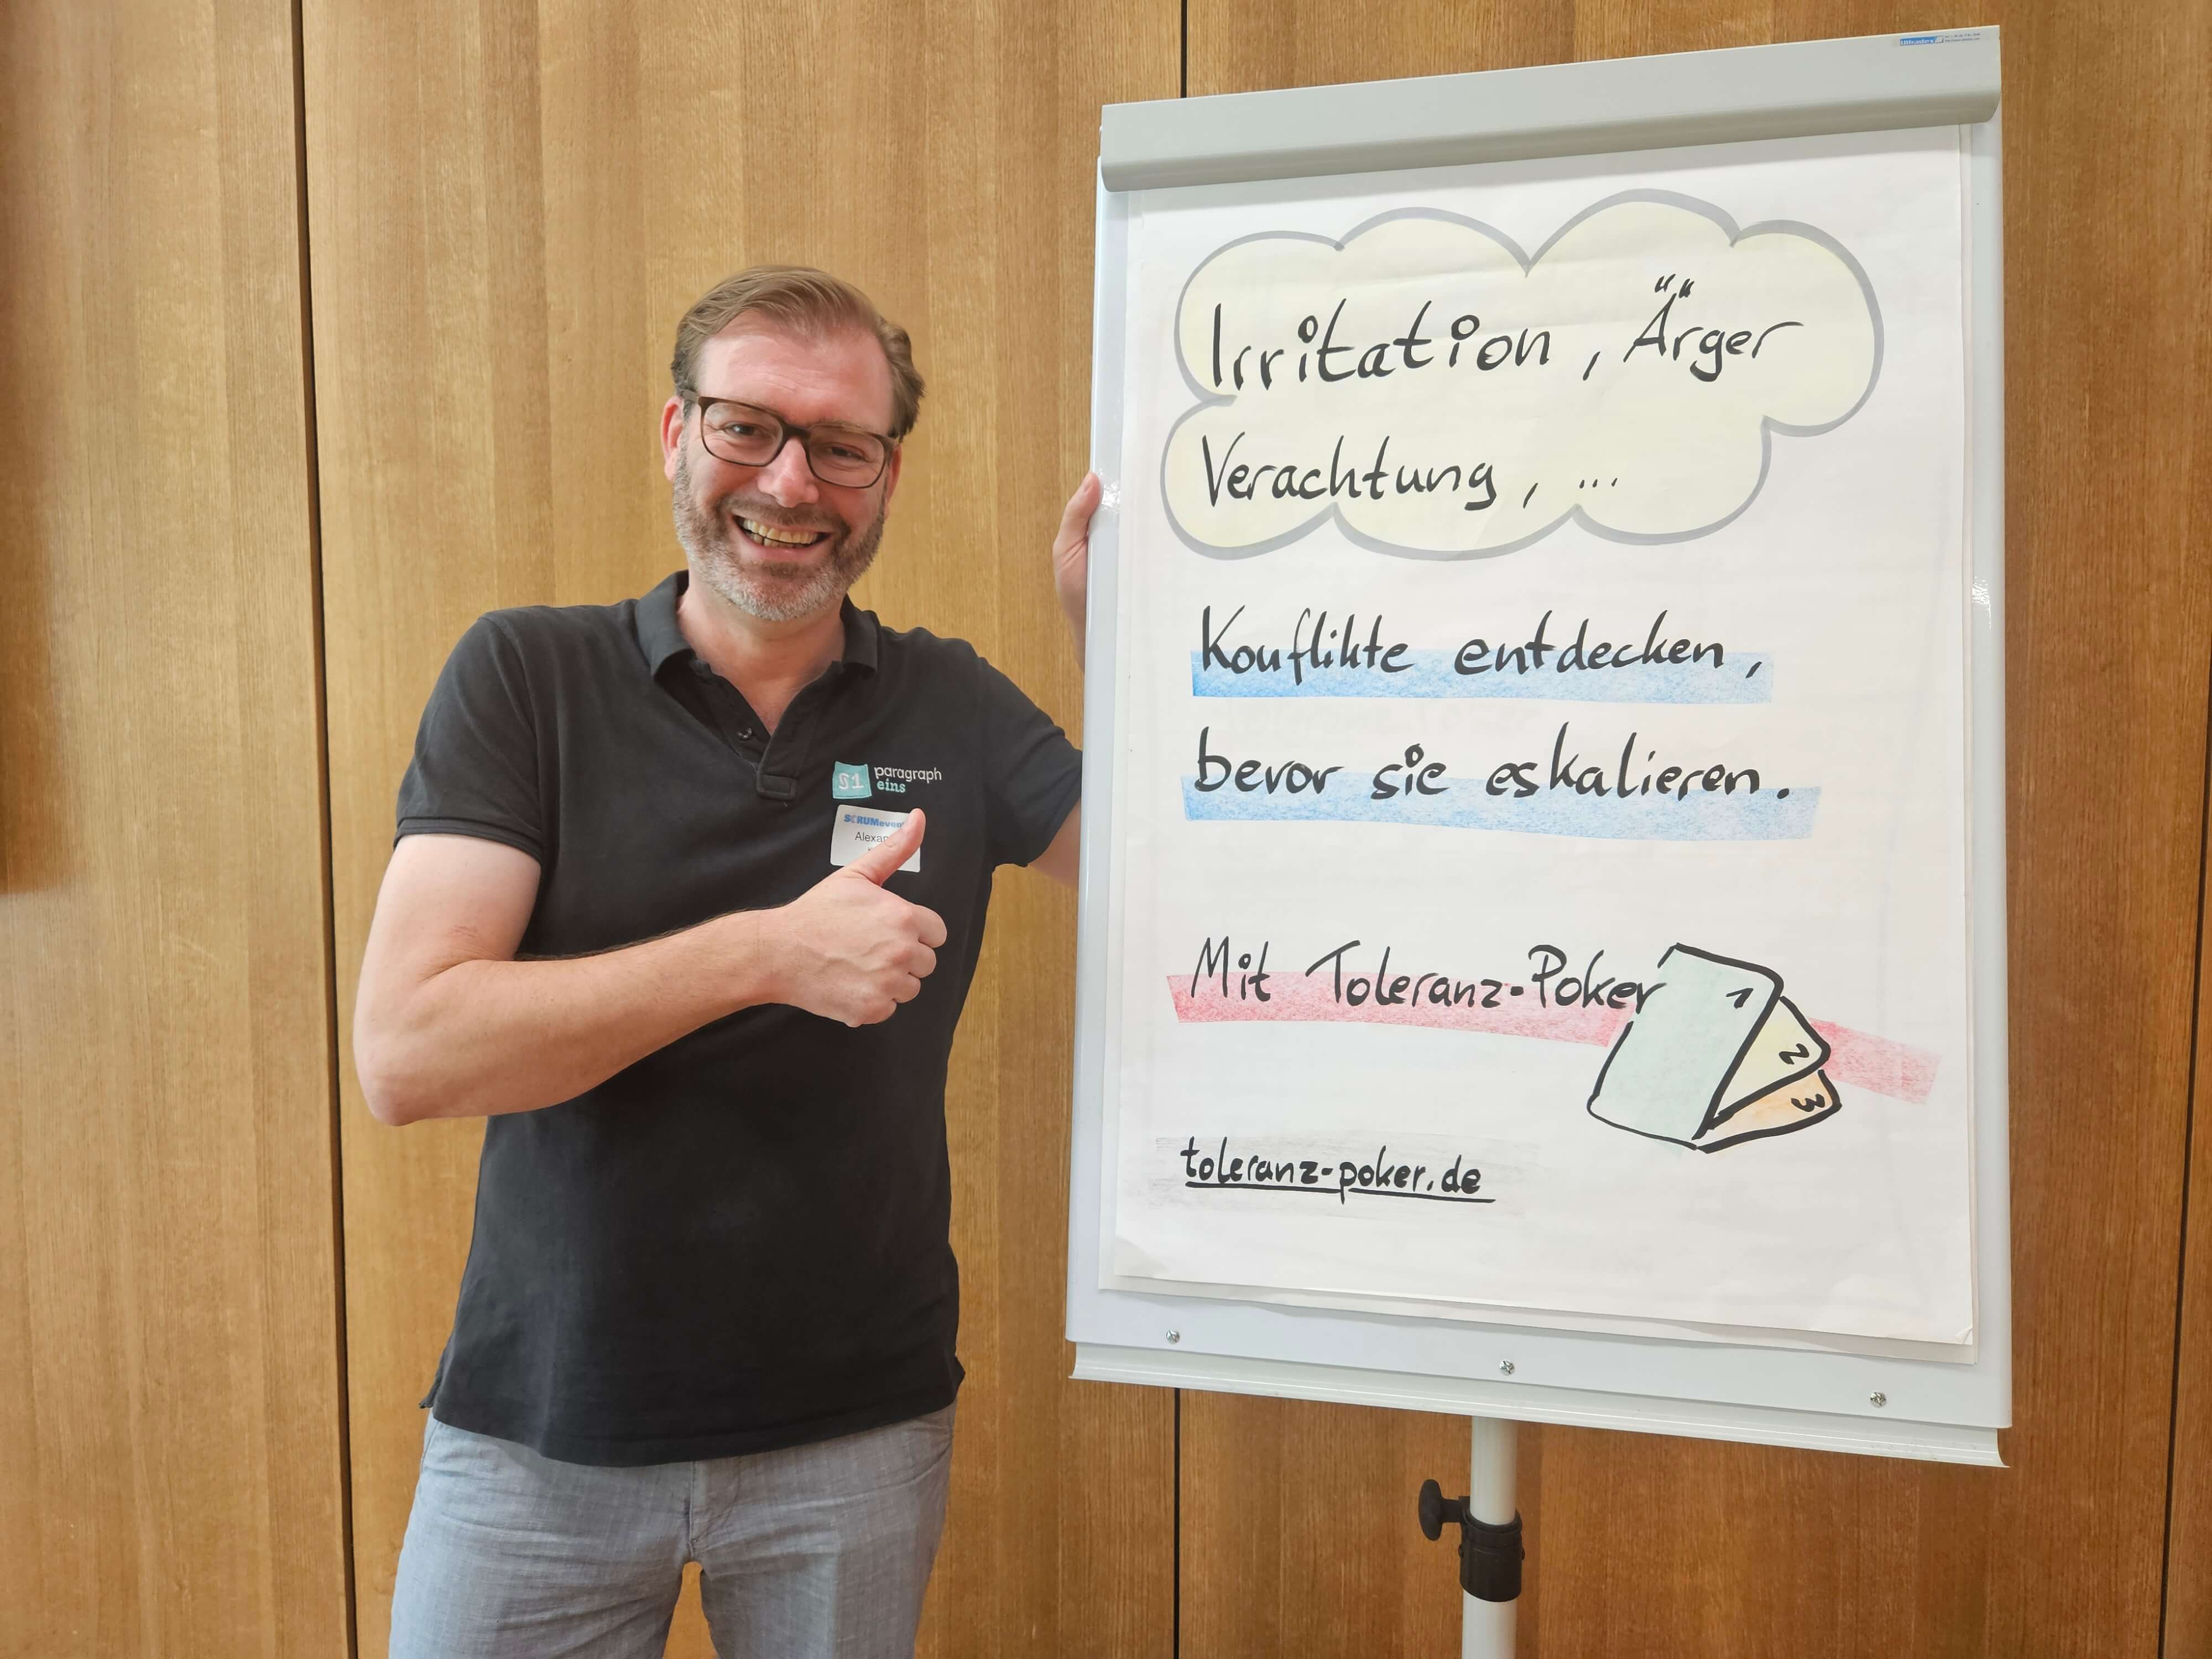 paragraph
eins
§1
Irritation, Ärger
Verachtung, ...
Konflikte entdecken,
bevor sie eskalieren.
Mit Toleranz-Poker
1
2
3
toleranz-poker.de